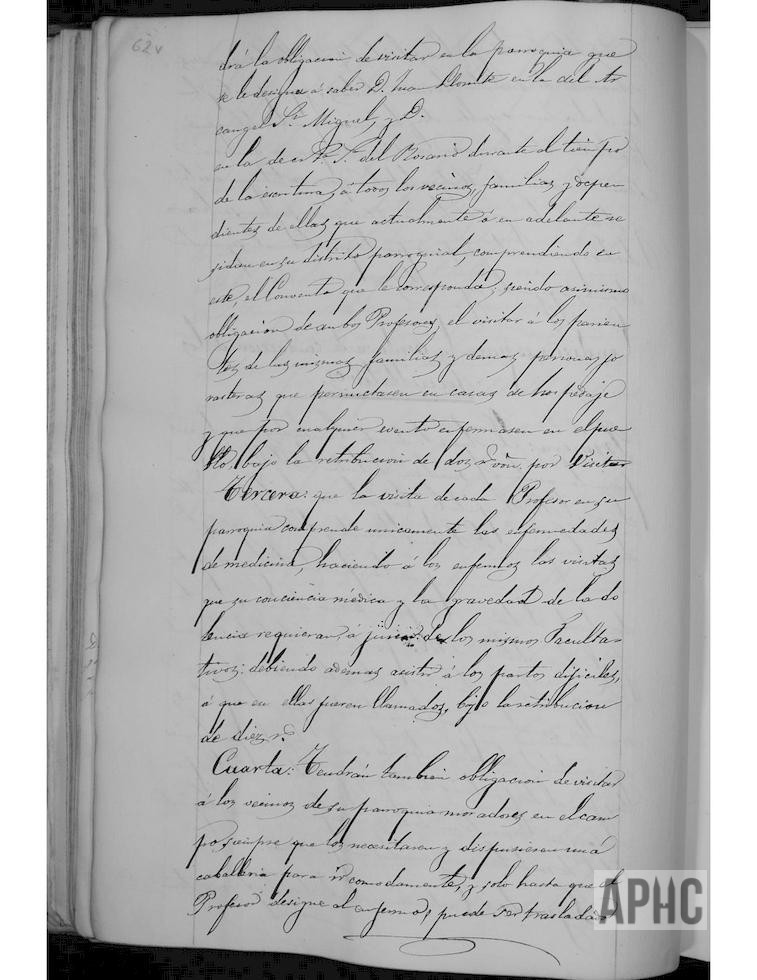 62v
drá la obligacion de visitar en la parroquia que
se le designa á saber D. Juan Llorente en la del Ar
cangel Sn. Miguel, y D.
en la de Ntra. Sra. del Rosario durante el tiempo
de la escritura, á todos los vecinos, familias y depen
dientes de ellas que actualmente ó en adelante re
sidiesen en su distrito parroquial, comprendiendo en
este, el Convento que le corresponda; siendo asimismo
obligacion de ambos Profesores, el visitar á los parien
tes de las mismas familias y demas personas fo
rasteras que pernoctasen en casas de hospedaje
y que por cualquier evento enfermasen en el pue
blo, bajo la retribucion de dos rs. von. por visita
Tercera: que la visita de cada Profesor en su
parroquia comprende unicamente las enfermedades
de medicina, haciendo á los enfermos las visitas
que su conciencia médica y la gravedad de la do
lencia requieran, á juicio de los mismos Faculta-
tivos: debiendo ademas asistir á los partos dificiles,
á que en ellas fueren llamados, bajo la retribucion
de diez rs.
Cuarta: Tendrán tambien obligacion de visitar
á los vecinos de su parroquia moradores en el cam
po, siempre que los necesitaren y dispusieren una
caballeria para ir comodamente, y solo hasta que el
Profesor designe al enfermo, puede ser trasladado
APHC